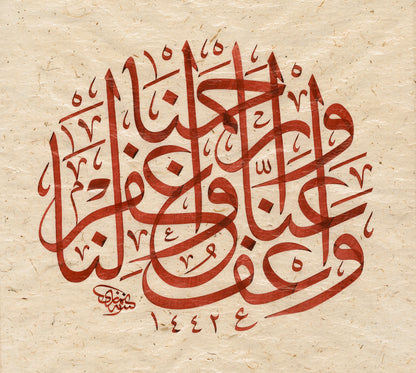 واعف عنا واغفر لنا وارحمنا
١٤٤٢